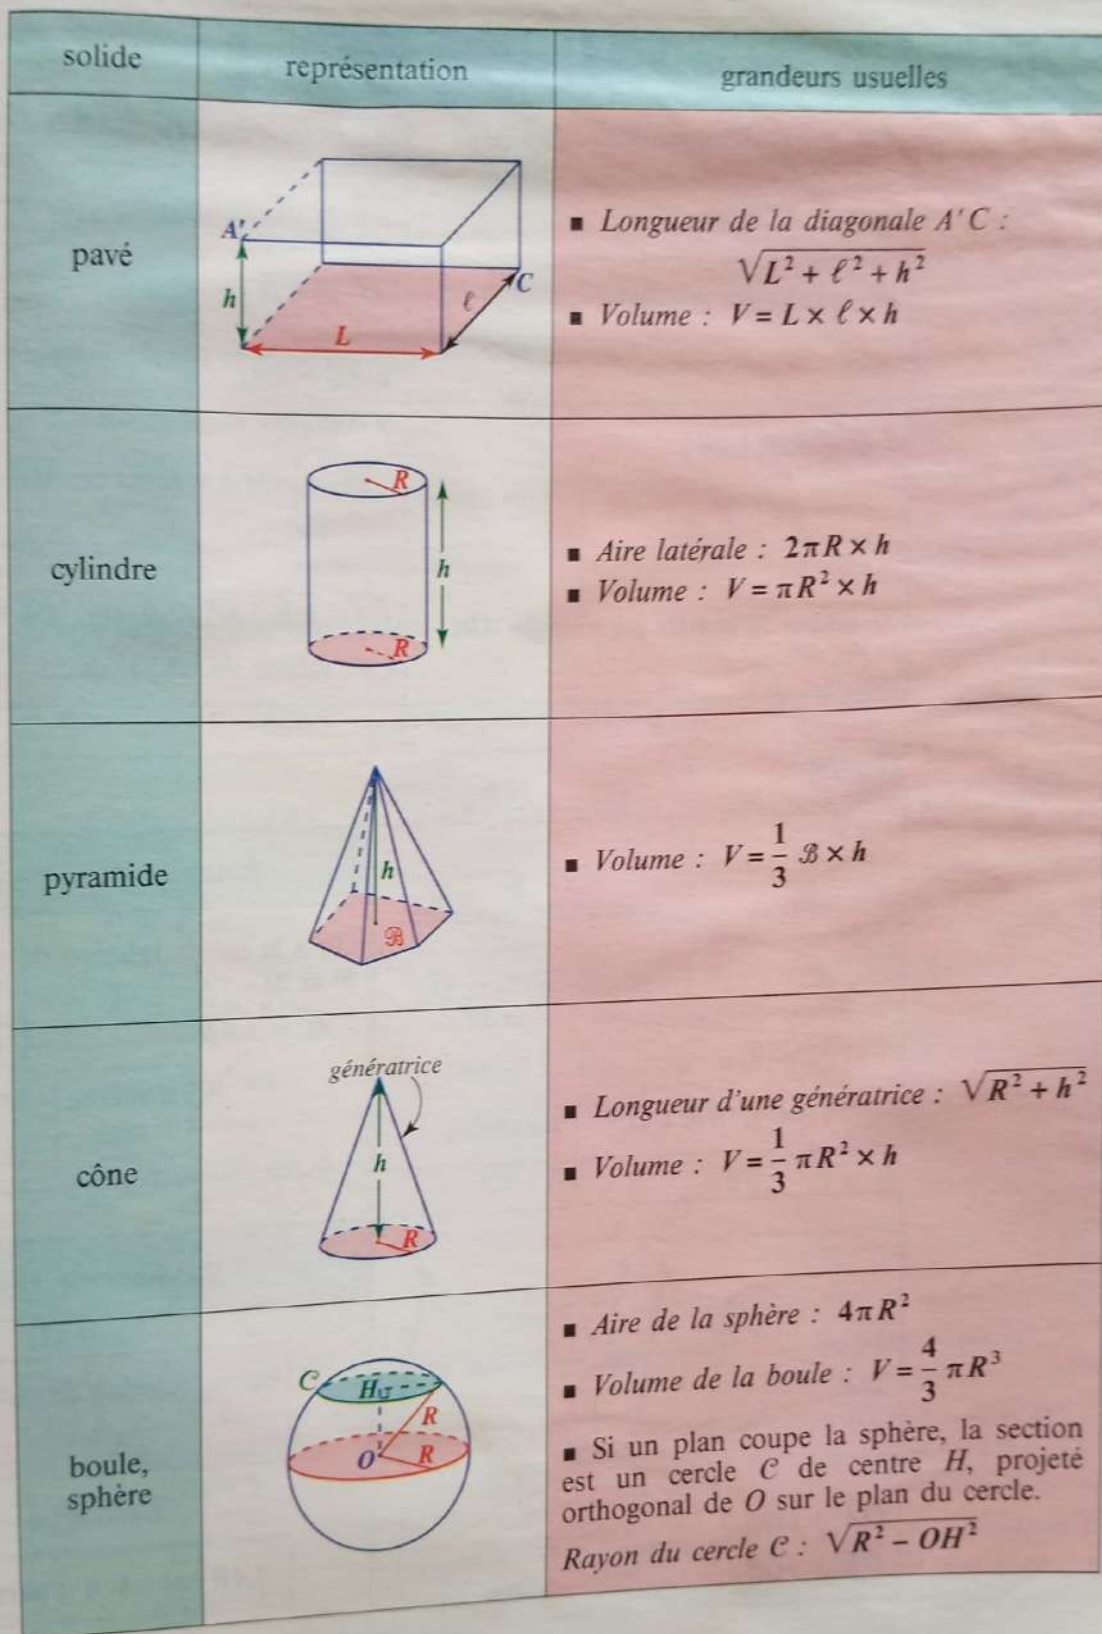 solide représentation grandeurs usuelles
pavé
A'
h
L
ℓ
C
■ Longueur de la diagonale A'C :
√(L² + ℓ² + h²)
■ Volume : V = L × ℓ × h
cylindre
R
h
R
■ Aire latérale : 2πR × h
■ Volume : V = πR² × h
pyramide
h
ℬ
■ Volume : V = 1/3 ℬ × h
cône
génératrice
h
R
■ Longueur d'une génératrice : √(R² + h²)
■ Volume : V = 1/3 πR² × h
boule,
sphère
C
H
R
O
R
■ Aire de la sphère : 4πR²
■ Volume de la boule : V = 4/3 πR³
■ Si un plan coupe la sphère, la section
est un cercle C de centre H, projeté
orthogonal de O sur le plan du cercle.
Rayon du cercle C : √(R² − OH²)